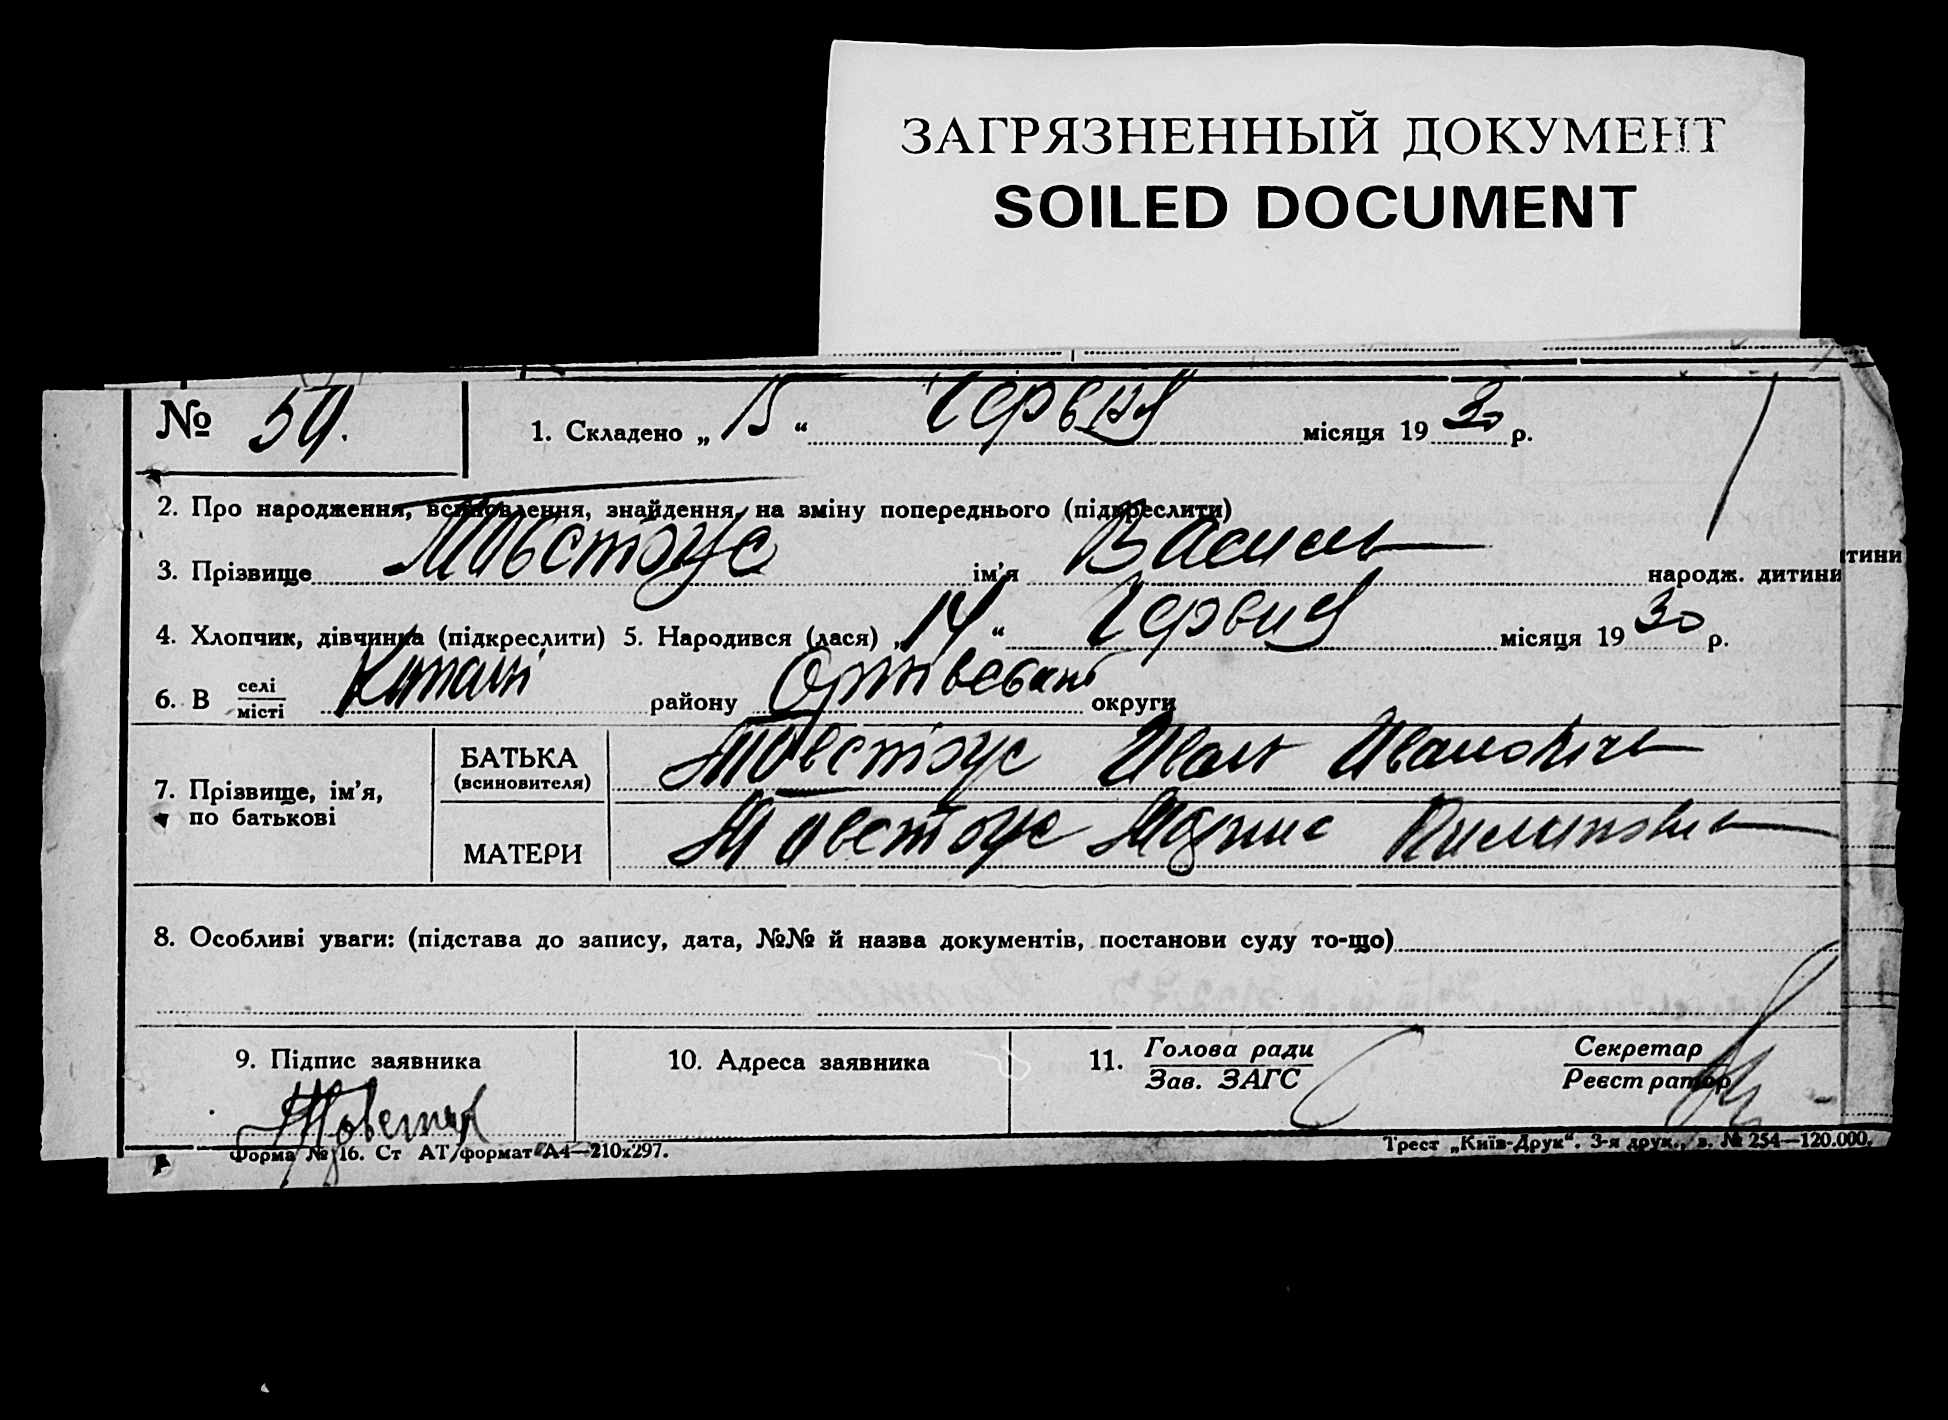 ЗАГРЯЗНЕННЫЙ ДОКУМЕНТ
SOILED DOCUMENT
№ 59. 1. Складено „ 15 “ Червня місяця 19 30 р.
2. Про народження, всиновлення, знайдення, на зміну попереднього (підкреслити)
3. Прізвище Товстоус ім'я Василь народж. дитини
тини
4. Хлопчик, дівчинка (підкреслити) 5. Народився (лася) „ 14 “ Червня місяця 19 30 р.
6. В селі місті району округи
7. Прізвище, ім'я, по батькові
БАТЬКА (всиновителя) Товстоус Иван Иванович
МАТЕРИ Товстоус
8. Особливі уваги: (підстава до запису, дата, №№ й назва документів, постанови суду то-що)
9. Підпис заявника 10. Адреса заявника 11. Голова ради Зав. ЗАГС Секретар Реєстратор
Форма № 16. Ст АТ/формат А4—210х297. Трест „Київ-Друк“. 3-я друк., з. № 254—120.000.